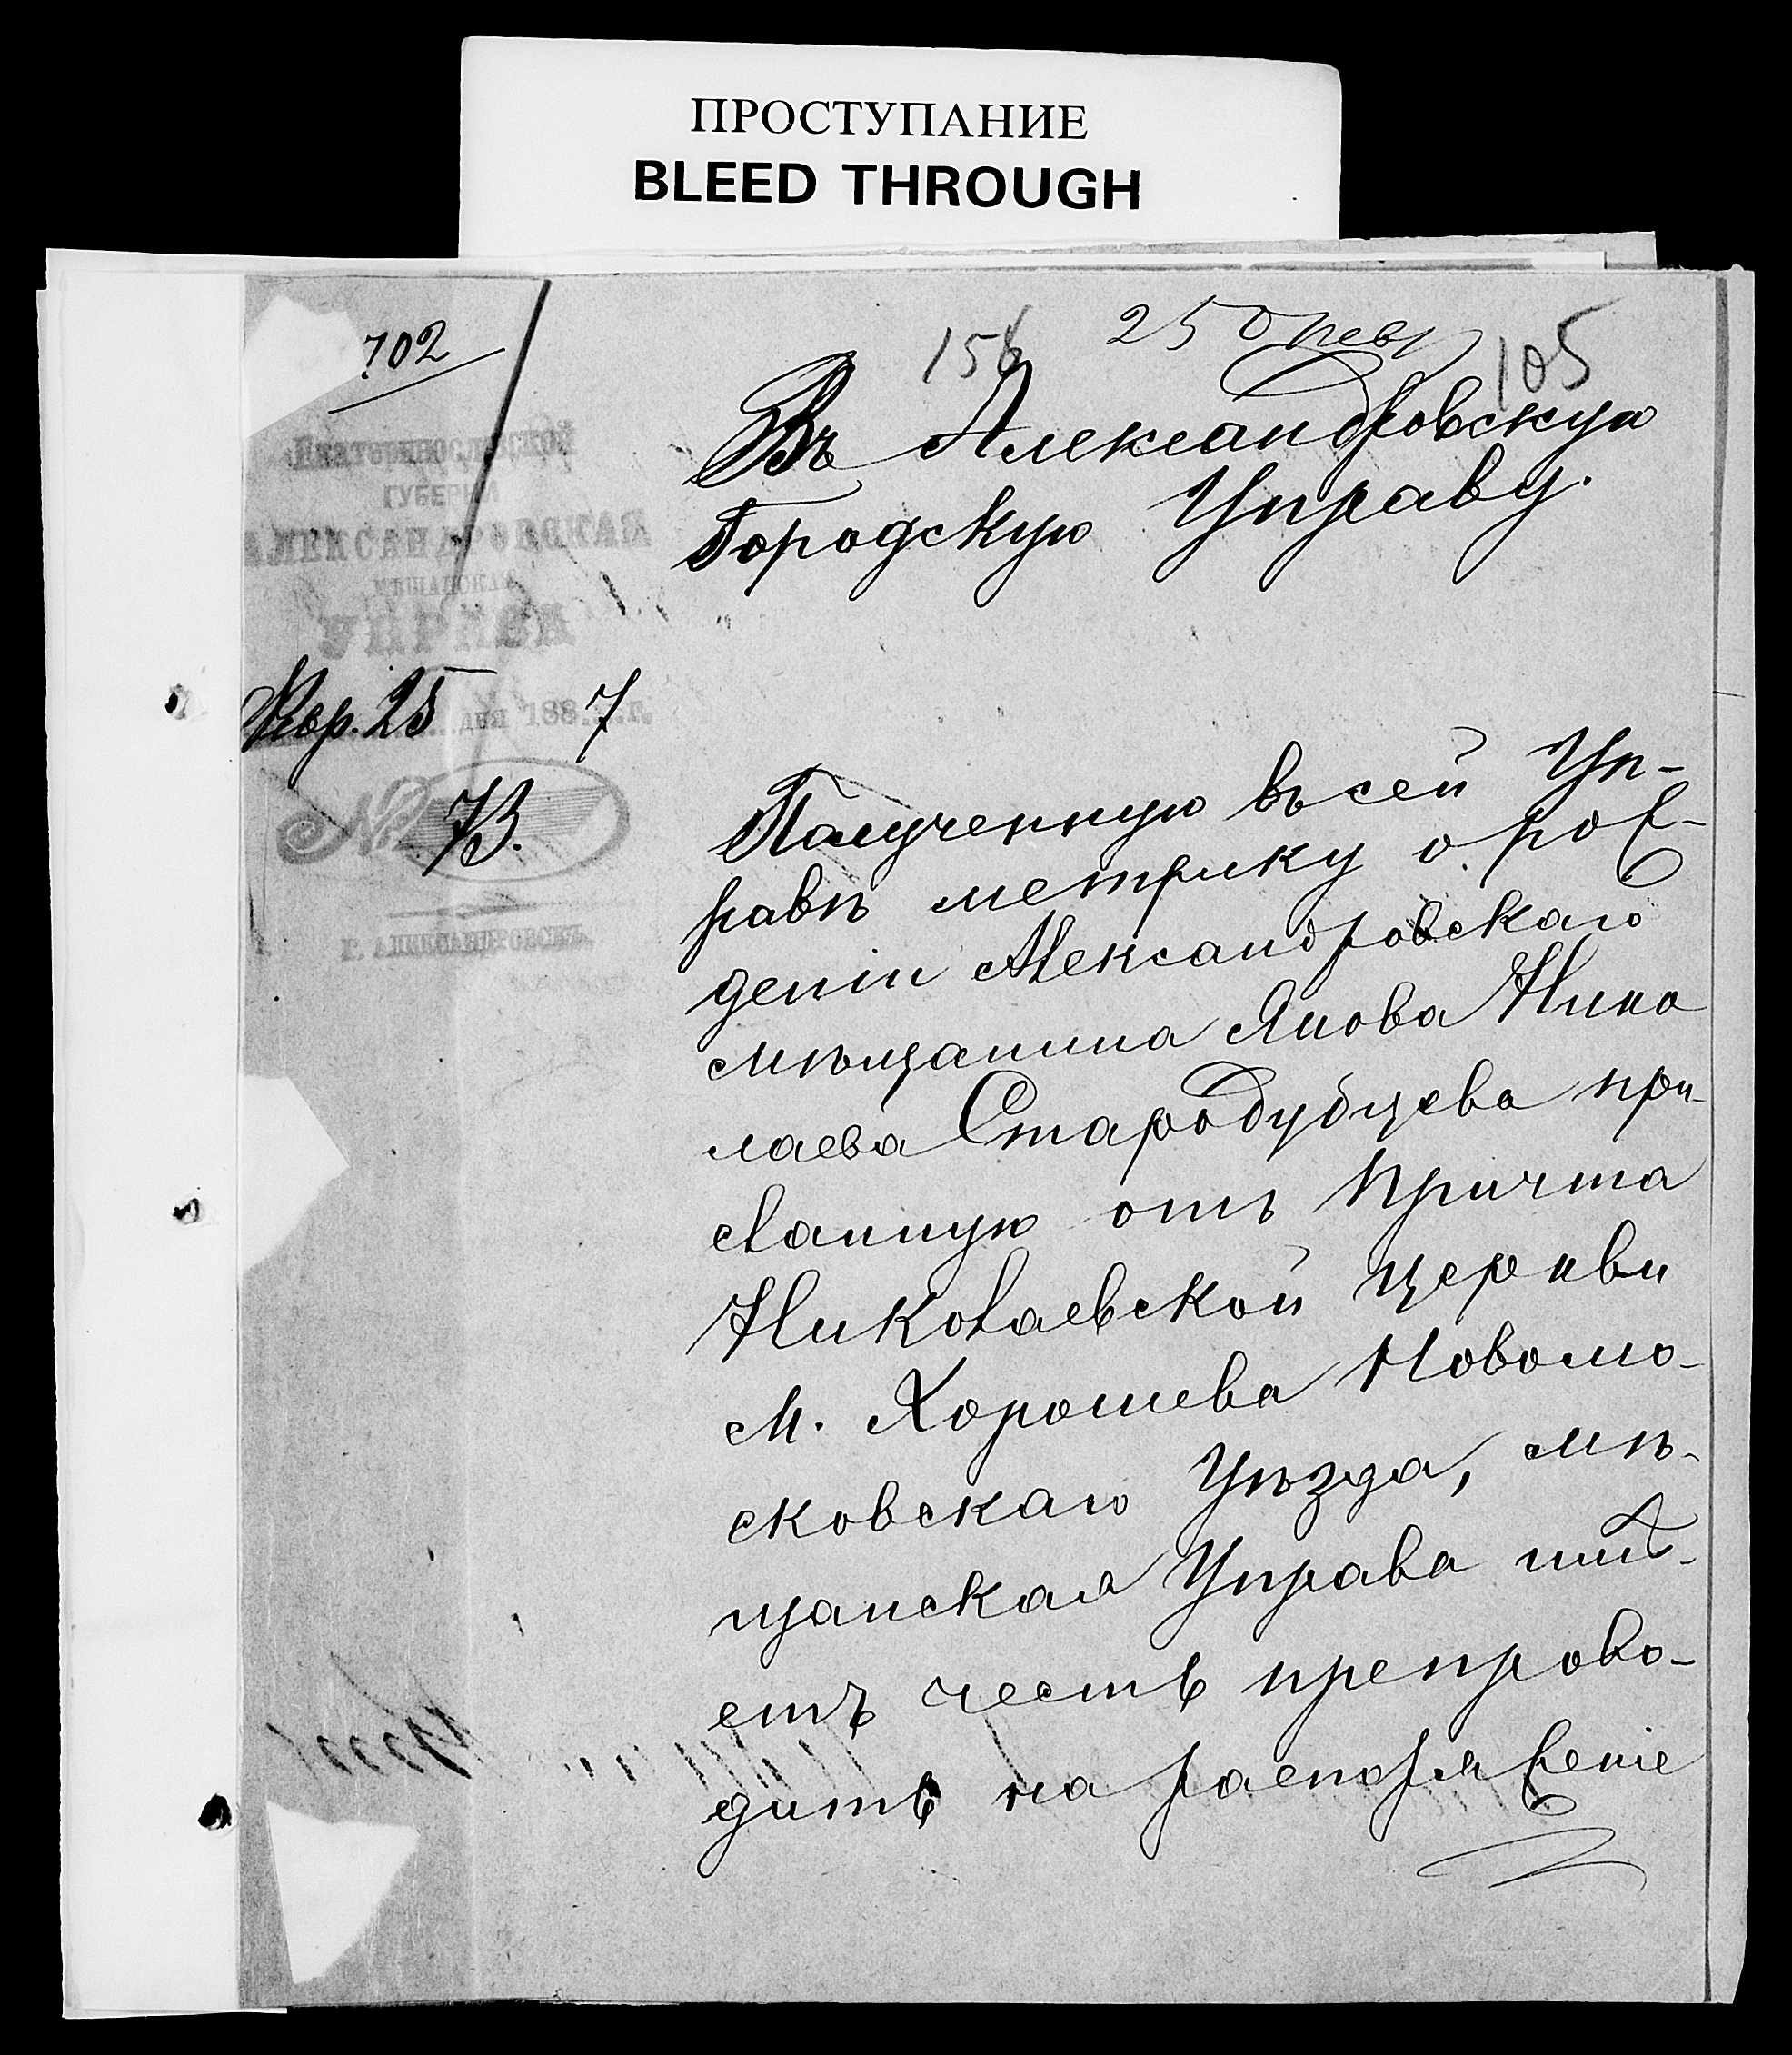 ПРОСТУПАНИЕ
BLEED THROUGH
702
156
250
105
Въ Александровскую
Городскую Управу.
Екатеринославской
ГУБЕРНИ
АЛЕКСАНДРОВСКАЯ
МѢЩАНСКАЯ
УПРАВА
25 дня 1887 г.
№ 73.
Г. АЛЕКСАНДРОВСКЪ.
Полученную въ сей Уп-
равѣ метрику о рож-
деніи Александровскаго
мѣщанина Якова Нико
лаева Стародубцева при-
сланную отъ Причта
Николаевской церкви
м. Хорошева Новомо-
сковскаго Уѣзда, мѣ-
щанская Управа имѣ-
етъ честь препрово-
дить на распоряженіе